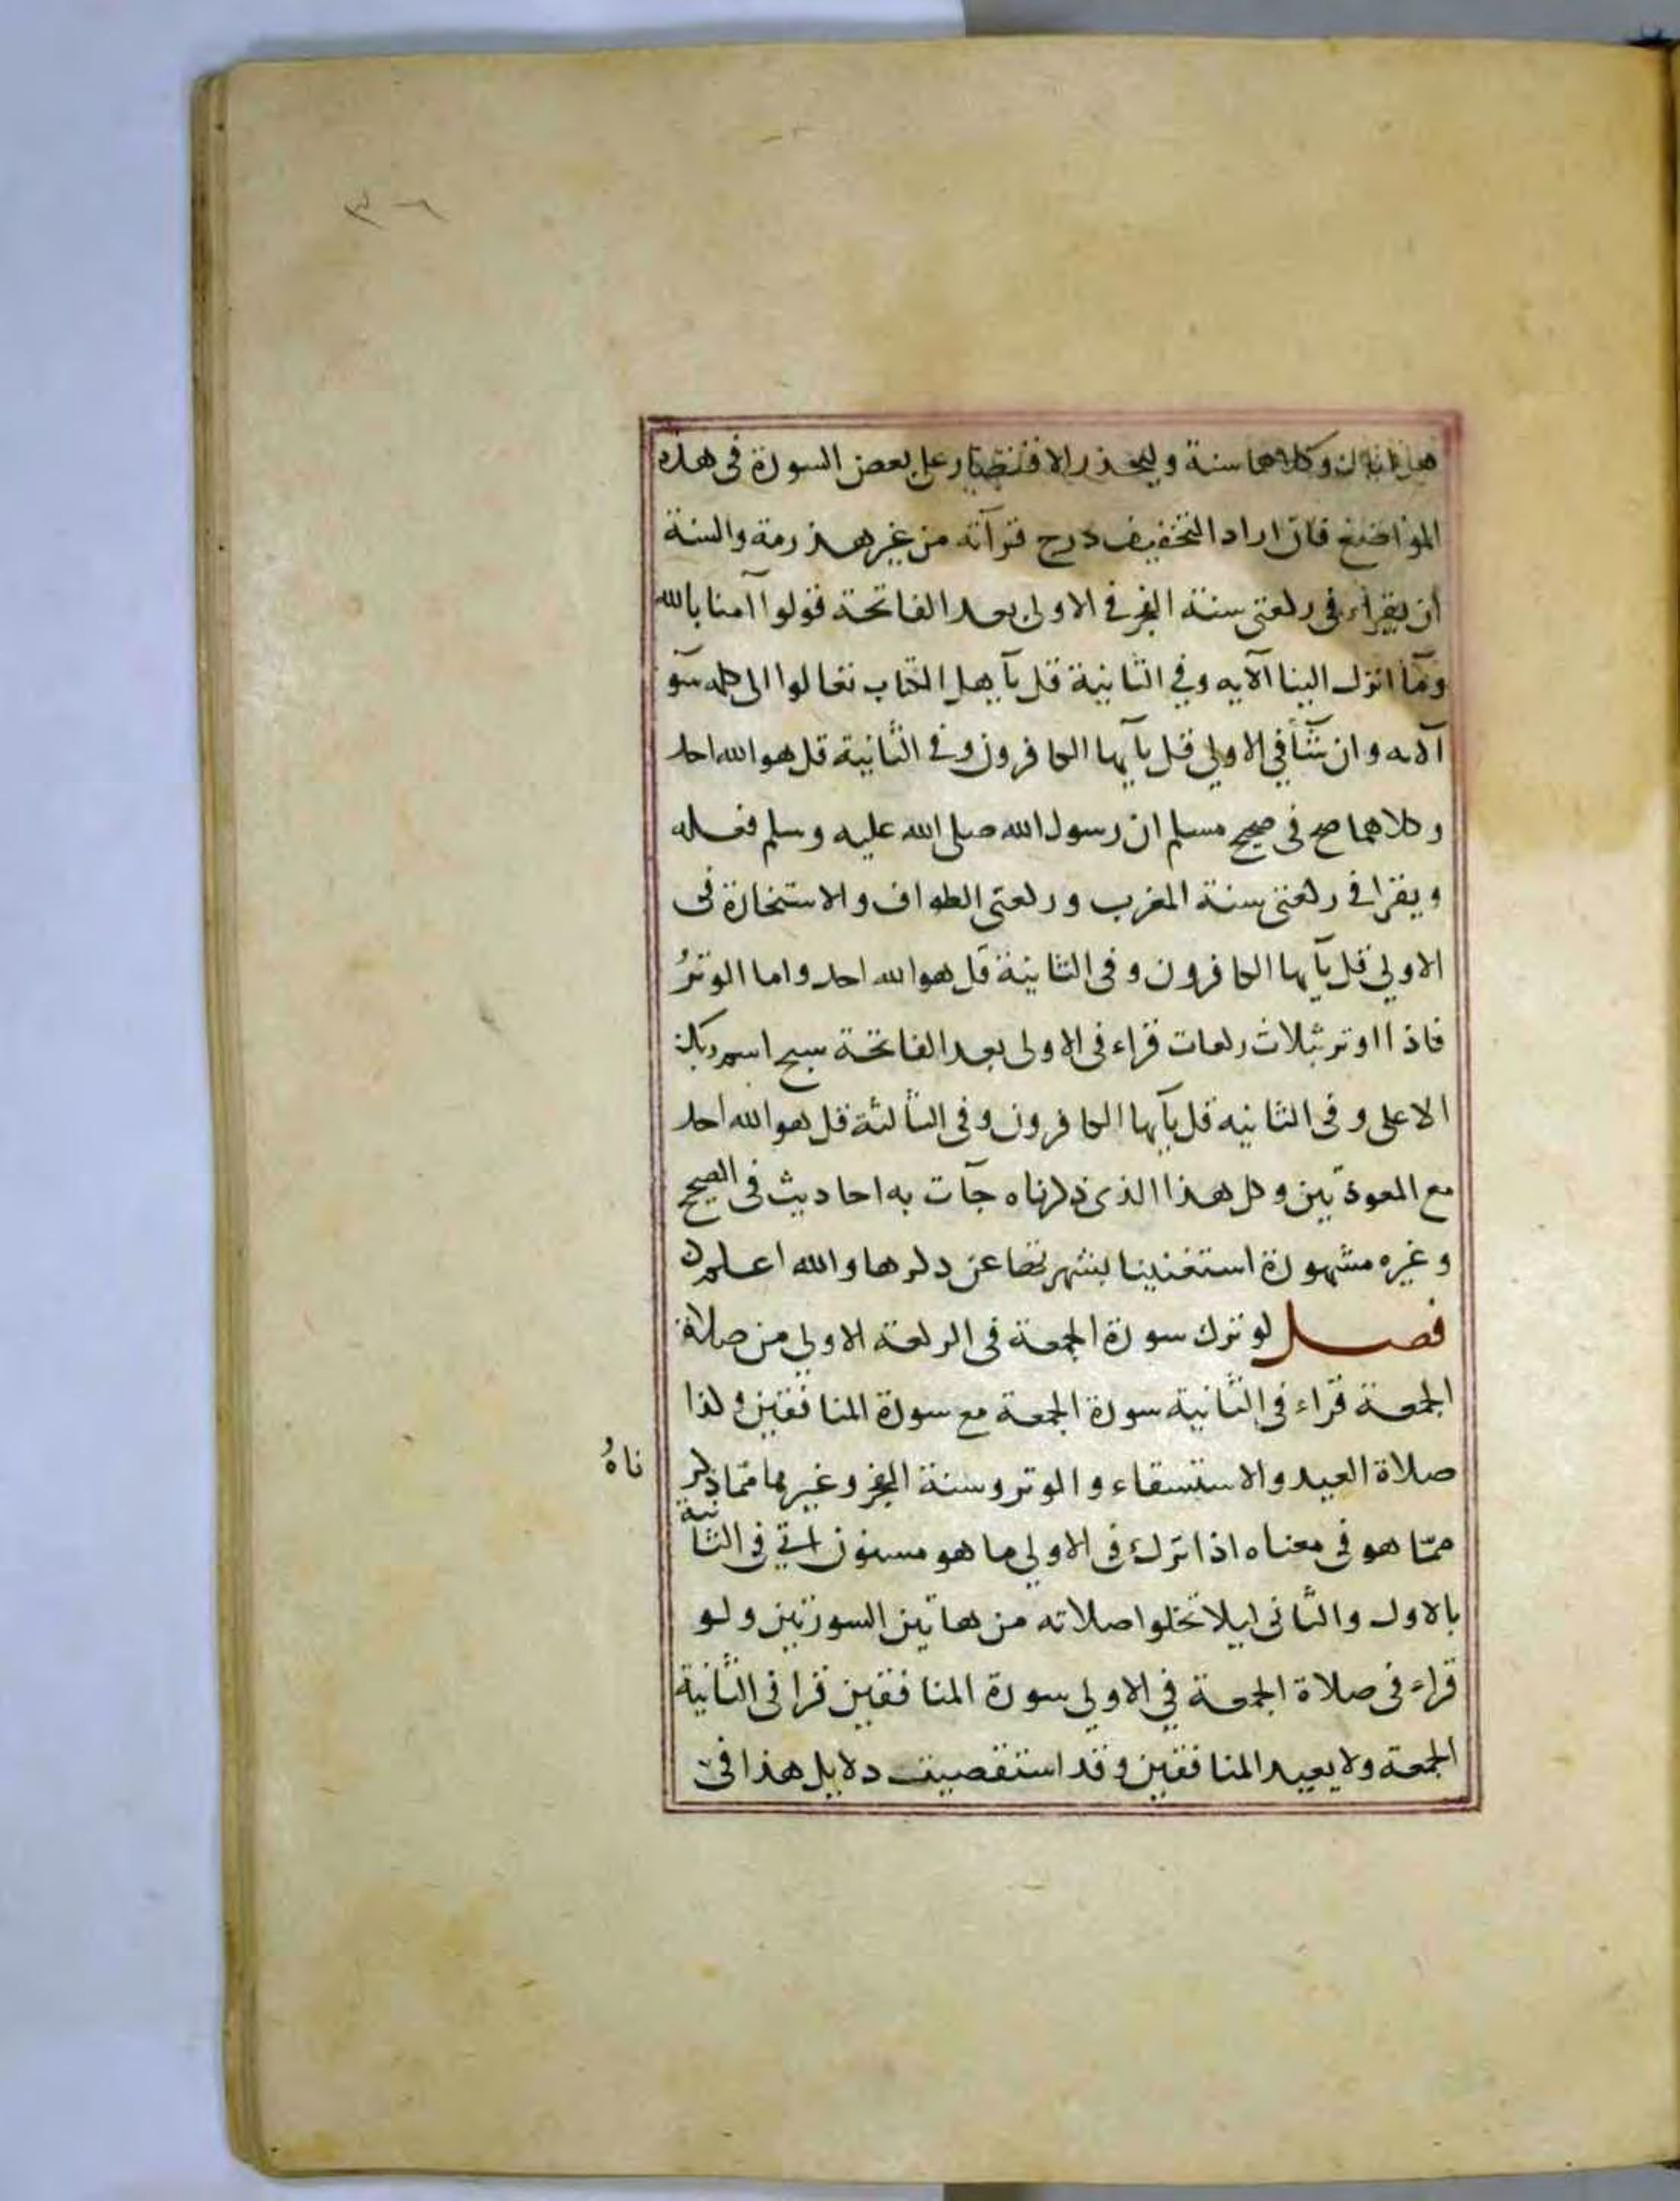 ٣٦
وكلاهما سنة وليحذر الاقتصار على بعض السورة فى هذه
المواضع فان اراد التخفيف درج قرآته من غير هذرمة والسنة
ان يقراء فى ركعتى سنة الفجر فى الاولى بعد الفاتحة قولوا آمنا بالله
ومآ انزل الينا الآيه وفي الثانية قل يآ هل الكتاب تعالوا الى كلمه سوآ
آلايه وان شآ في الاولى قل يآيها الكافرون وفى الثانية قل هو الله احد
وكلاهما صح فى صحيح مسلم ان رسول الله صلى الله عليه وسلم فعله
ويقرا فى ركعتى سنة المغرب وركعتى الطواف والاستخارة فى
الاولي قل يآيها الكافرون وفى الثانية قل هو الله احد واما الوترُ
فاذا اوتر بثلاث ركعات قراء فى الاولى بعد الفاتحة سبح اسم ربك
الاعلى وفى الثانيه قل يآيها الكافرون وفى الثالثة قل هو الله احد
مع المعوذتين وكل هذا الذى ذكرناه جآت به احاديث فى الصحيح
وغيره مشهورة استغنينا بشهرتها عن ذكرها والله اعلم
فصل لو ترك سورة الجمعة فى الركعة الاولي من صلاة
الجمعة قراء فى الثانية سورة الجمعة مع سورة المنافقين وكذا
صلاة العيد والاستسقاء والوتر وسنة الفجر وغيرها ممّا ذكر
ناهُ
ممّا هو فى معناه اذا ترك فى الاولي ما هو مسنون اتي فى الثانية
بالاول والثانى ليلا تخلوا صلاته من هاتين السورتين ولو
قراء فى صلاة الجمعة في الاولي سورة المنافقين قرا فى الثانية
الجمعة ولا يعيد المنافقين وقد استقصيت دلايل هذا فى